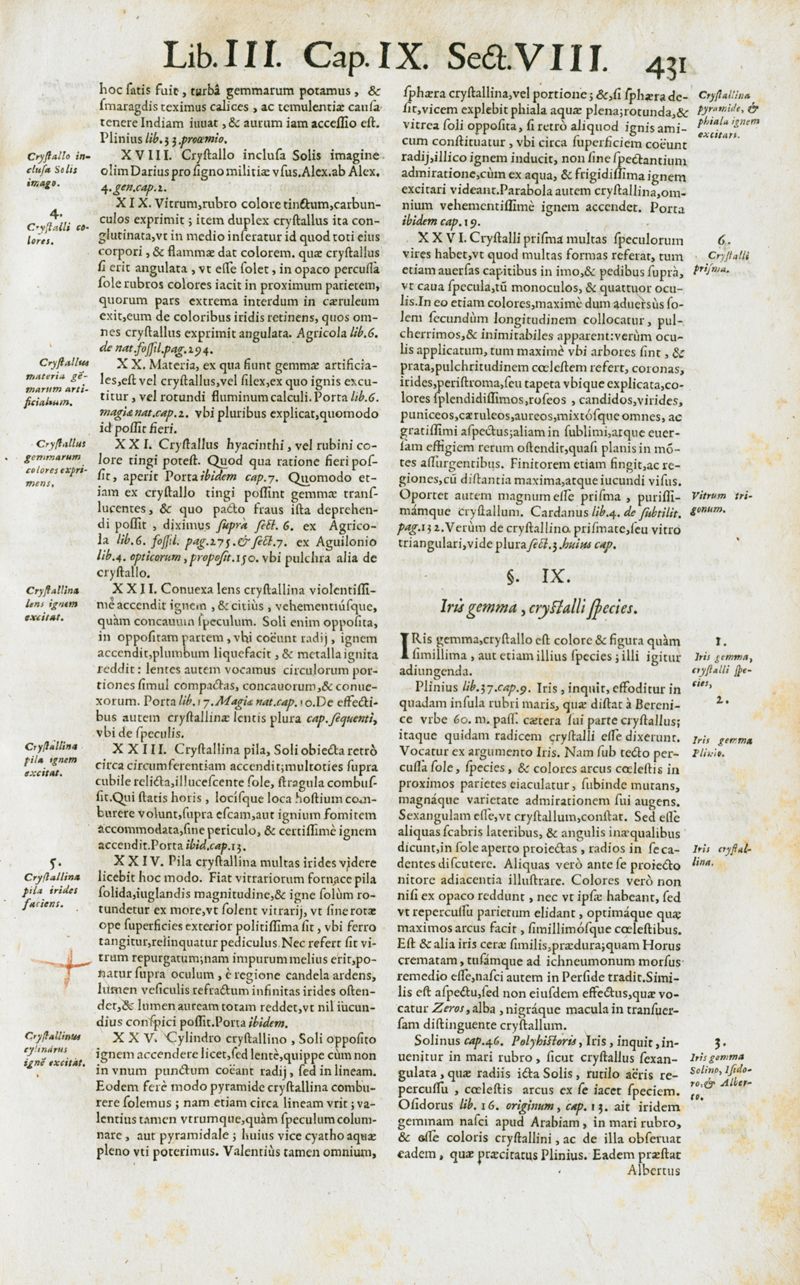 Lib. III. Cap. IX. Sect. VIII. 431
hoc ſatis fuit, turbâ gemmarum potamus, &
ſmaragdis teximus calices, ac temulentiæ cauſa
tenere Indiam iuuat, & aurum iam acceſſio eſt.
Plinius lib.33.proœmio.
Cryſtallo in-
cluſa Solis
imago.
XVIII. Cryſtallo incluſa Solis imagine
olim Darius pro ſigno militiæ vſus. Alex. ab Alex.
4.gen.cap.2.
4.
Cryſtalli co-
lores.
XIX. Vitrum, rubro colore tinctum, carbun-
culos exprimit; item duplex cryſtallus ita con-
glutinata, vt in medio inferatur id quod toti eius
corpori, & flammæ dat colorem. quæ cryſtallus
ſi erit angulata, vt eſſe ſolet, in opaco percuſſa
ſole rubros colores iacit in proximum parietem,
quorum pars extrema interdum in cæruleum
exit, eum de coloribus iridis retinens, quos om-
nes cryſtallus exprimit angulata. Agricola lib.6.
de nat.foſſil.pag.294.
Cryſtallus
materia gē-
marum arti-
ficialium.
XX. Materia, ex qua fiunt gemmæ artificia-
les, eſt vel cryſtallus, vel ſilex, ex quo ignis excu-
titur, vel rotundi fluminum calculi. Porta lib.6.
magiæ nat.cap.2. vbi pluribus explicat, quomodo
id poſſit fieri.
Cryſtallus
gemmarum
colores expri-
mens.
XXI. Cryſtallus hyacinthi, vel rubini co-
lore tingi poteſt. Quod qua ratione fieri poſ-
ſit, aperit Porta ibidem cap.7. Quomodo et-
iam ex cryſtallo tingi poſſint gemmæ tranſ-
lucentes, & quo pacto fraus iſta deprehen-
di poſſit, diximus ſupra ſect.6. ex Agrico-
la lib.6. foſſil. pag.275.& ſect.7. ex Aguilonio
lib.4. opticorum, propoſit.150. vbi pulchra alia de
cryſtallo.
Cryſtallina
lens ignem
excitat.
XXII. Conuexa lens cryſtallina violentiſſi-
mè accendit ignem, & citiùs, vehementiúſque,
quàm concauum ſpeculum. Soli enim oppoſita,
in oppoſitam partem, vbi coëunt radij, ignem
accendit, plumbum liquefacit, & metalla ignita
reddit: lentes autem vocamus circulorum por-
tiones ſimul compactas, concauorum, & conue-
xorum. Porta lib.17.Magiæ nat.cap.10. De effecti-
bus autem cryſtallinæ lentis plura cap. ſequenti,
vbi de ſpeculis.
Cryſtallina
pila ignem
excitat.
XXIII. Cryſtallina pila, Soli obiecta retrò
circa circumferentiam accendit; multoties ſupra
cubile relicta, illuceſcente ſole, ſtragula combuſ-
ſit. Qui ſtatis horis, lociſque loca hoſtium com-
burere volunt, ſupra eſcam, aut ignium fomitem
accommodata, ſine periculo, & certiſſimè ignem
accendit. Porta ibid.cap.13.
5.
Cryſtallina
pila irides
faciens.
XXIV. Pila cryſtallina multas irides videre
licebit hoc modo. Fiat vitrariorum fornace pila
ſolida, iuglandis magnitudine, & igne ſolùm ro-
tundetur ex more, vt ſolent vitrarij, vt ſine rotæ
ope ſuperficies exterior politiſſima ſit, vbi ferro
tangitur, relinquatur pediculus. Nec refert ſit vi-
trum repurgatum; nam impurum melius erit, po-
natur ſupra oculum, è regione candela ardens,
lumen veſiculis refractum infinitas irides oſten-
det, & lumen auream totam reddet, vt nil iucun-
dius conſpici poſſit. Porta ibidem.
Cryſtallinus
cylindrus
ignē excitat.
XXV. Cylindro cryſtallino, Soli oppoſito
ignem accendere licet, ſed lentè, quippe cùm non
in vnum punctum coëant radij, ſed in lineam.
Eodem ferè modo pyramide cryſtallina combu-
rere ſolemus; nam etiam circa lineam vrit; va-
lentius tamen vtrumque, quàm ſpeculum colum-
nare, aut pyramidale; huius vice cyatho aquæ
pleno vti poterimus. Valentiùs tamen omnium,
ſphæra cryſtallina, vel portione; &, ſi ſphæra de-
ſit, vicem explebit phiala aquæ plena; rotunda, &
vitrea ſoli oppoſita, ſi retrò aliquod ignis ami-
cum conſtituatur, vbi circa ſuperficiem coëunt
radij, illico ignem inducit, non ſine ſpectantium
admiratione, cùm ex aqua, & frigidiſſima ignem
excitari videant. Parabola autem cryſtallina, om-
nium vehementiſſimè ignem accendet. Porta
ibidem cap.19.
Cryſtallina
pyramide, &
phiala ignem
excitari.
XXVI. Cryſtalli priſma multas ſpeculorum
vires habet, vt quod multas formas referat, tum
etiam auerſas capitibus in imo, & pedibus ſuprà,
vt caua ſpecula, tū monoculos, & quattuor ocu-
lis. In eo etiam colores, maximè dum aduersùs ſo-
lem ſecundùm longitudinem collocatur, pul-
cherrimos, & inimitabiles apparent: verùm ocu-
lis applicatum, tum maximè vbi arbores ſint, &
prata, pulchritudinem cœleſtem refert, coronas,
irides, periſtroma, ſeu tapeta vbique explicata, co-
lores ſplendidiſſimos, roſeos, candidos, virides,
puniceos, cæruleos, aureos, mixtóſque omnes, ac
gratiſſimi aſpectus; aliam in ſublimi, atque euer-
ſam effigiem rerum oſtendit, quaſi planis in mō-
tes aſſurgentibus. Finitorem etiam fingit, ac re-
giones, cū diſtantia maxima, atque iucundi viſus.
Oportet autem magnum eſſe priſma, puriſſi-
mámque cryſtallum. Cardanus lib.4. de ſubtilit.
pag.132. Verùm de cryſtallino priſmate, ſeu vitro
triangulari, vide plura ſect.3.huius cap.
6.
Cryſtalli
priſma.
Vitrum tri-
gonum.
§. IX.
Iris gemma, cryſtalli ſpecies.
IRis gemma, cryſtallo eſt colore & figura quàm
ſimillima, aut etiam illius ſpecies; illi igitur
adiungenda.
1.
Iris gemma,
cryſtalli ſpe-
cies.
2.
Plinius lib.37.cap.9. Iris, inquit, effoditur in
quadam inſula rubri maris, quæ diſtat à Bereni-
ce vrbe 60. m. paſſ. cætera ſui parte cryſtallus;
itaque quidam radicem cryſtalli eſſe dixerunt.
Vocatur ex argumento Iris. Nam ſub tecto per-
cuſſa ſole, ſpecies, & colores arcus cœleſtis in
proximos parietes eiaculatur, ſubinde mutans,
magnáque varietate admirationem ſui augens.
Sexangulam eſſe, vt cryſtallum, conſtat. Sed eſſe
aliquas ſcabris lateribus, & angulis inæqualibus
dicunt, in ſole aperto proiectas, radios in ſe ca-
dentes diſcutere. Aliquas verò ante ſe proiecto
nitore adiacentia illuſtrare. Colores verò non
niſi ex opaco reddunt, nec vt ipſæ habeant, ſed
vt repercuſſu parietum elidant, optimáque quæ
maximos arcus facit, ſimillimóſque cœleſtibus.
Eſt & alia iris ceræ ſimilis, prædura; quam Horus
crematam, tuſámque ad ichneumonum morſus
remedio eſſe, naſci autem in Perſide tradit. Simi-
lis eſt aſpectu, ſed non eiuſdem effectus, quæ vo-
catur Zeros, alba, nigráque macula in tranſuer-
ſam diſtinguente cryſtallum.
Iris gemma
Plinio.
Iris cryſtal-
lina.
Solinus cap.46. Polyhiſtoris, Iris, inquit, in-
uenitur in mari rubro, ſicut cryſtallus ſexan-
gulata, quæ radiis icta Solis, rutilo aëris re-
percuſſu, cœleſtis arcus ex ſe iacet ſpeciem.
Oſidorus lib. 16. originum, cap. 13. ait iridem
gemmam naſci apud Arabiam, in mari rubro,
& eſſe coloris cryſtallini, ac de illa obſeruat
eadem, quæ præcitatus Plinius. Eadem præſtat
Albertus
3.
Iris gemma
Solino, Iſido-
ro, & Alber-
to.